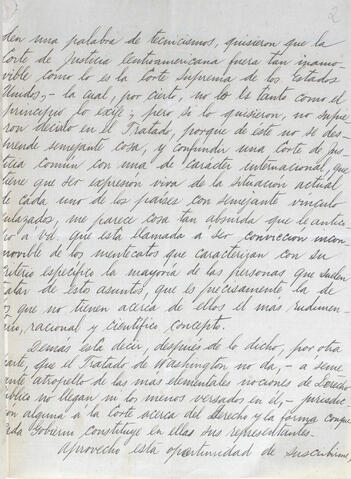 2
den una palabra de tecnicismos, quisieron que la
Corte de Justicia Centroamericana fuera tan inamo-
vible como lo es la Corte Suprema de los Estados
Unidos,- la cual, por cierto, no lo es tanto como el
principio lo exije; pero si lo quisieron, no supie-
ron decirlo en el Tratado, porque de este no se des-
prende semejante cosa, y confundir una Corte de jus-
ticia común con una de carácter internacional, que
tiene que ser expresión viva de la situación actual
de cada uno de los paises con semejante vinculo
enlazados, me parece cosa tan absurda que le antici-
po á Vd. que está llamada a ser convicción incon-
movible de los mentecatos que caracterizan con su
criterio específico la mayoría de las personas que suelen
tratar de estos asuntos, que es precisamente la de
los que no tienen acerca de ellos el más rudimen-
tario, racional y científico concepto.
Demás está decir, después de lo dicho, por otra
parte, que el Tratado de Washington no da,- á seme-
jante atropello de las mas elementales nociones de Derecho
Público no llegan ni los menos versados en él,- jurisdic-
ción alguna a la Corte acerca del derecho y la forma conque
cada Gobierno constituye en ellas sus representantes.
Aprovecho esta oportunidad de suscribirme,